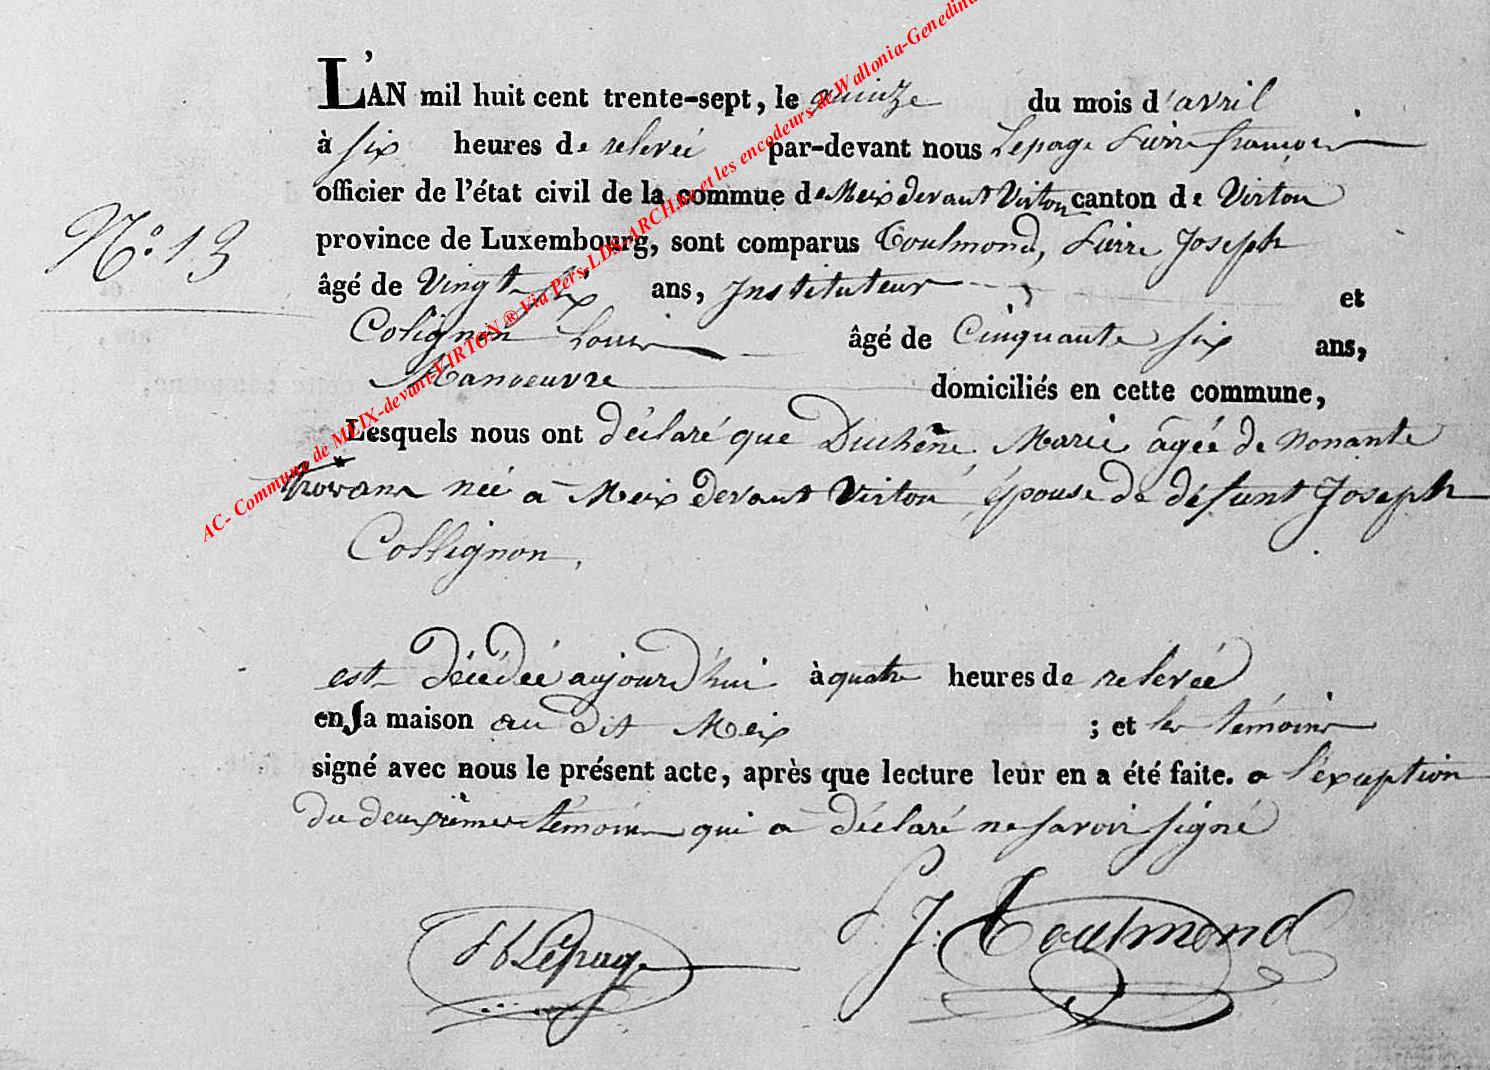 L'AN mil huit cent trente-sept, le quinze du mois d'avril
à six heures de relevée par-devant nous Lepage Pierre françois
officier de l'état civil de la commue de Meix devant Virton canton de Virton
province de Luxembourg, sont comparus Toulmond, Pierre Joseph
N.° 13
âgé de Vingt six ans, Instituteur et
Colignon Louis âgé de Cinquante six ans,
Manoeuvre domiciliés en cette commune,
Lesquels nous ont déclaré que Duchêne Marie âgée de nonante
trois ans née à Meix devant Virton, épouse de défunt Joseph
Collignon,
est décédée aujourd'hui à quatre heures de relevée
en sa maison au dit Meix ; et les témoins
signé avec nous le présent acte, après que lecture leur en a été faite. a l'exception
du deuxième témoin qui a déclaré ne savoir signé
Lepage
P. J. Toulmond
AC- Commune de MEIX-devant-VIRTON ® Via Pers-LDS-ARCH.be et les encodeurs de Wallonia-Genedina